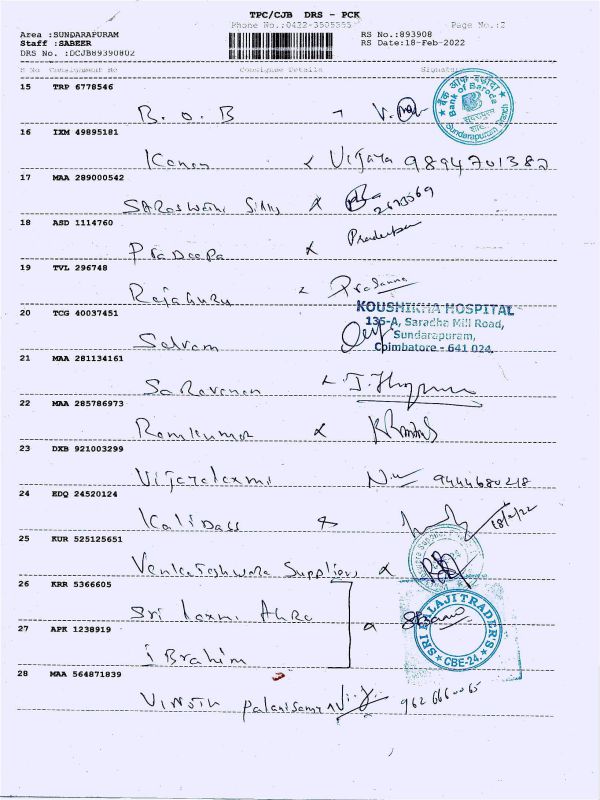 TPC/CJB DRS - PCK
Phone No.:0422-3505355 Page No.:2
Area :SUNDARAPURAM RS No.:893908
Staff :SABEER RS Date:18-Feb-2022
DRS No. :DCJB89390802
S No Consignment No Consignee Details Signature
15 TRP 6778546
B. O. B V.
बैंक ऑफ़ बड़ौदा
Bank of Baroda
Sundarapuram Branch
16 IXM 49895181
Kanan Vijaya 9894701382
17 MAA 289000542
Saraswathi Silks
18 ASD 1114760
Pradeepa Pradeepa
19 TVL 296748
Rajaguru Prasanna
20 TCG 40037451
KOUSHIKHA HOSPITAL
135-A, Saradha Mill Road,
Sundarapuram,
Coimbatore - 641 024.
Selvam
21 MAA 281134161
Saravanan
22 MAA 285786973
Ramkumar
23 DXB 921003299
Vijayalaxmi 9444680218
24 EDQ 24520124
Kalidass 18/2/22
25 KUR 525125651
Venkateshwara Suppliers
26 KRR 5366605
Sri Laxmi
27 APK 1238919
SRI BALAJI TRADER'S
CBE-24.
iBrahim
28 MAA 564871839
Vinoth Palanisamy 962 6660065